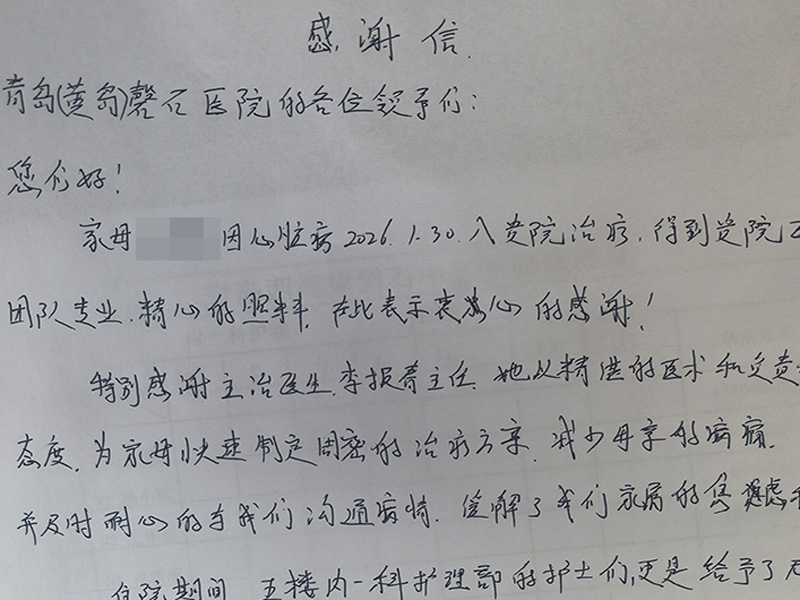 感谢信
青岛(黄岛)磬石医院的各位领导们:
您们好!
家母 因心脏病2026.1.30.入贵院治疗,得到贵院
团队专业.精心的照料,在此表示衷心的感谢!
特别感谢主治医生.李振青主任.她以精湛的医术和负责
态度,为家母快速制定周密的治疗方案,减少母亲的病痛.
并及时耐心的与我们沟通病情.缓解了我们家属的焦虑
住院期间 五楼内一科护理部的护士们,更是给予了